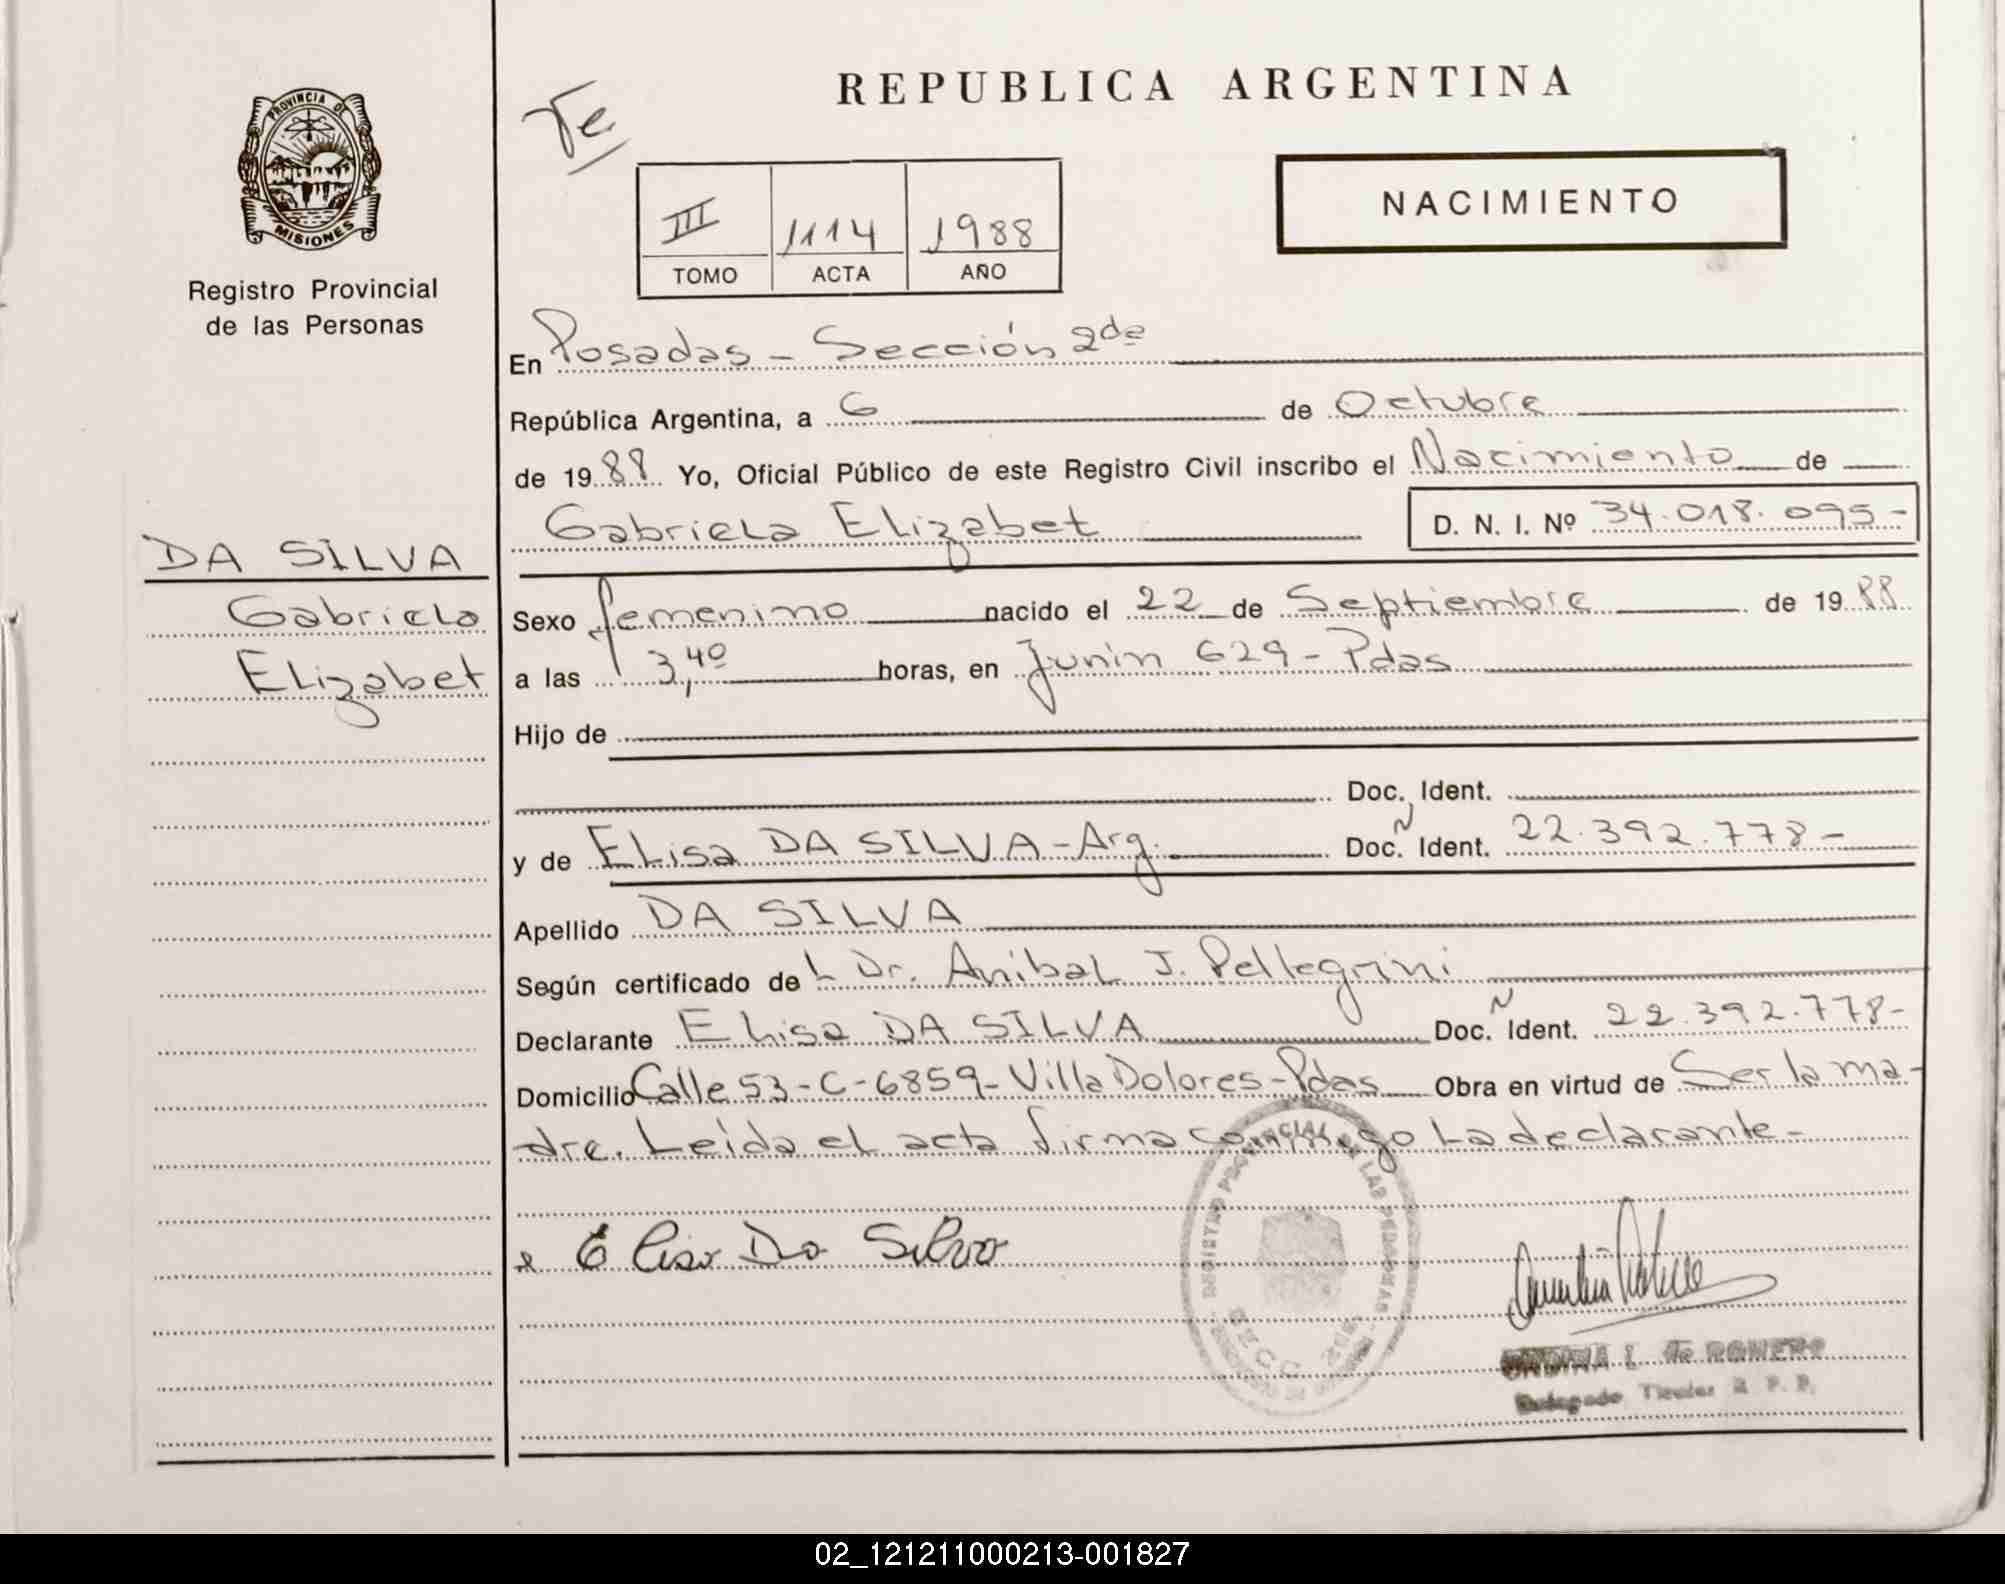 REPUBLICA ARGENTINA
PROVINCIA DE
MISIONES
Registro Provincial
de las Personas
Te
III 1114 1988
TOMO ACTA AÑO
NACIMIENTO
En Posadas - Sección 2da
República Argentina, a 6 de Octubre
de 1988 Yo, Oficial Público de este Registro Civil inscribo el Nacimiento de
Gabriela Elizabet D. N. I. Nº 34.018.095-
DA SILVA
Gabriela
Elizabet
Sexo femenino nacido el 22 de Septiembre de 1988
a las 3,40 horas, en Junín 629 - Pdas
Hijo de
Doc. Ident.
y de Elisa DA SILVA - Arg. Doc. N Ident. 22.392.778-
Apellido DA SILVA
Según certificado de L Dr. Anibal J. Pellegrini
Declarante Elisa DA SILVA Doc. N Ident. 22.392.778-
Domicilio Calle 53-C-6859-Villa Dolores-Pdas Obra en virtud de Ser la ma-
dre. Leída el acta firma conmigo La declarante-
Elisa Da Silva
REGISTRO PROVINCIAL DE LAS PERSONAS
SECC. 2da
L. de ROMERO
Delegado Titular R. P. P.
02_121211000213-001827